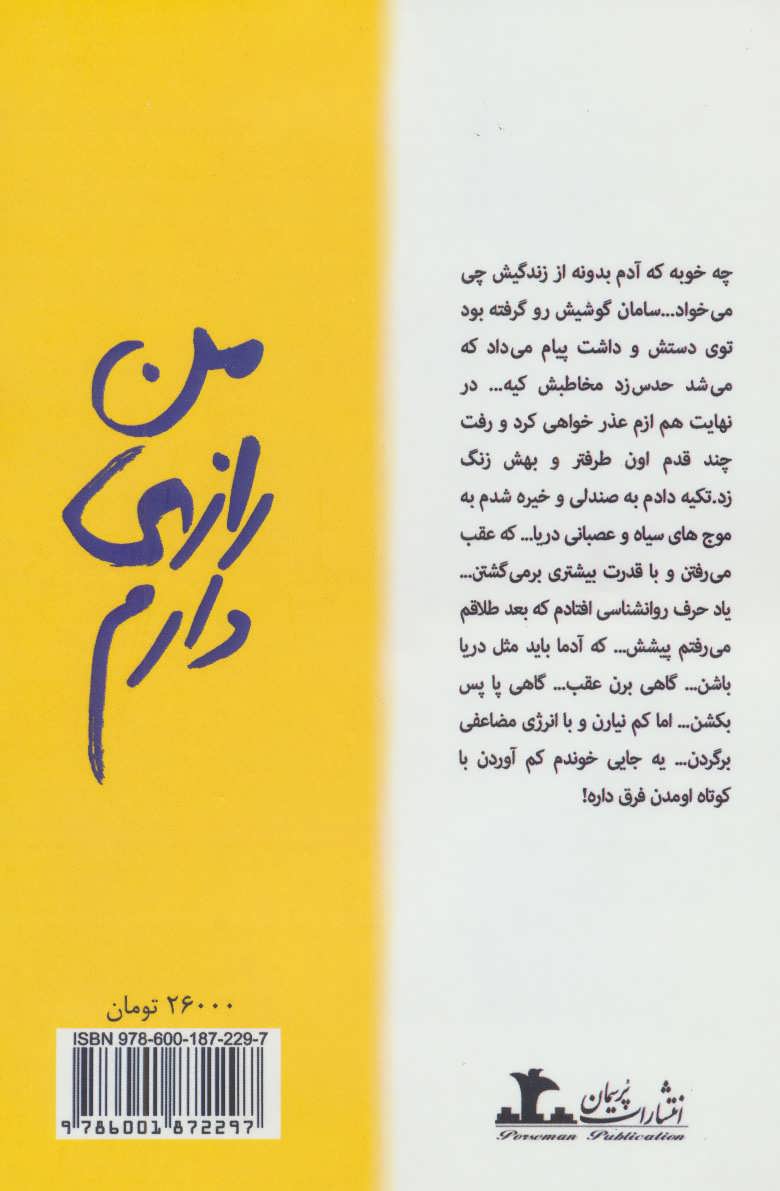 چه خوبه که آدم بدونه از زندگیش چی
می‌خواد...سامان گوشیش رو گرفته بود
توی دستش و داشت پیام می‌داد که
می‌شد حدس‌زد مخاطبش کیه... در
نهایت هم ازم عذر خواهی کرد و رفت
چند قدم اون طرفتر و بهش زنگ
زد.تکیه دادم به صندلی و خیره شدم به
موج های سیاه و عصبانی دریا... که عقب
می‌رفتن و با قدرت بیشتری برمی‌گشتن...
یاد حرف روانشناسی افتادم که بعد طلاقم
می‌رفتم پیشش... که آدما باید مثل دریا
باشن... گاهی برن عقب... گاهی پا پس
بکشن... اما کم نیارن و با انرژی مضاعفی
برگردن... یه جایی خوندم کم آوردن با
کوتاه اومدن فرق داره!
انتشارات پُرسمان
Porseman Publication
من
رازی
دارم
۲۶۰۰۰ تومان
ISBN 978-600-187-229-7
9 786001 872297